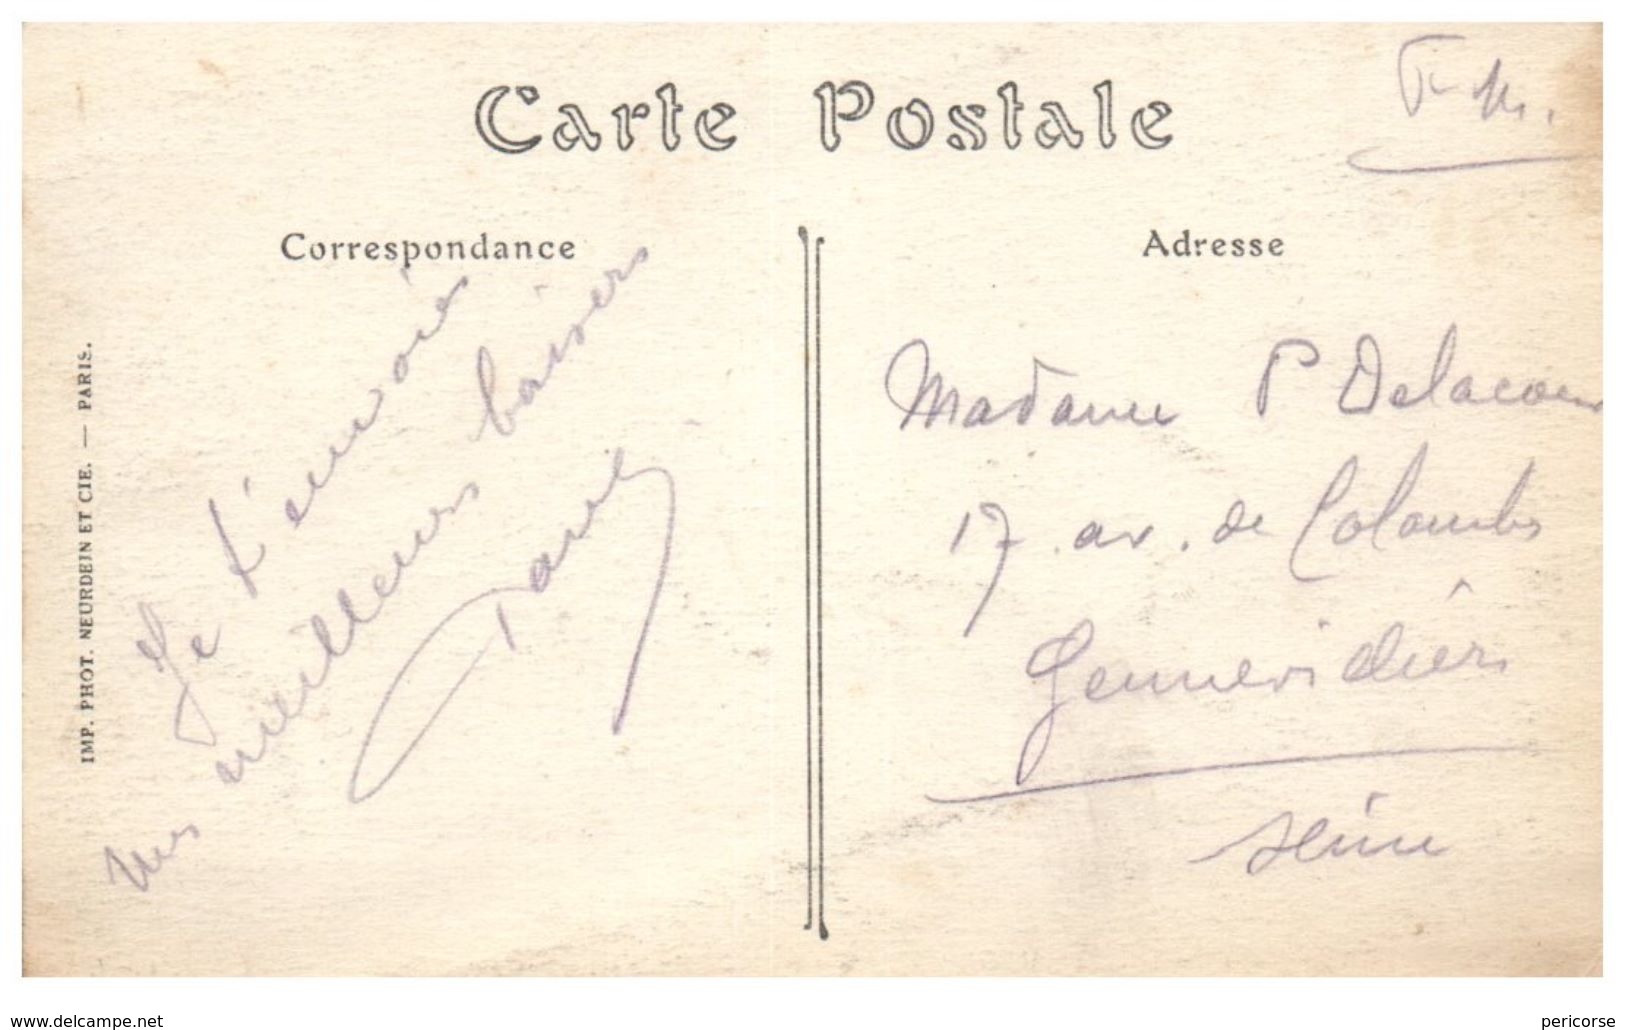 Carte Postale
F. M.
Correspondance
Je t'envoie
mes meilleurs baisers
Paul
IMP. PHOT. NEURDEIN ET CIE. — PARIS.
Adresse
Madame P Delacour
17 av. de Colombes
Gennevilliers
Seine
www.delcampe.net
pericorse